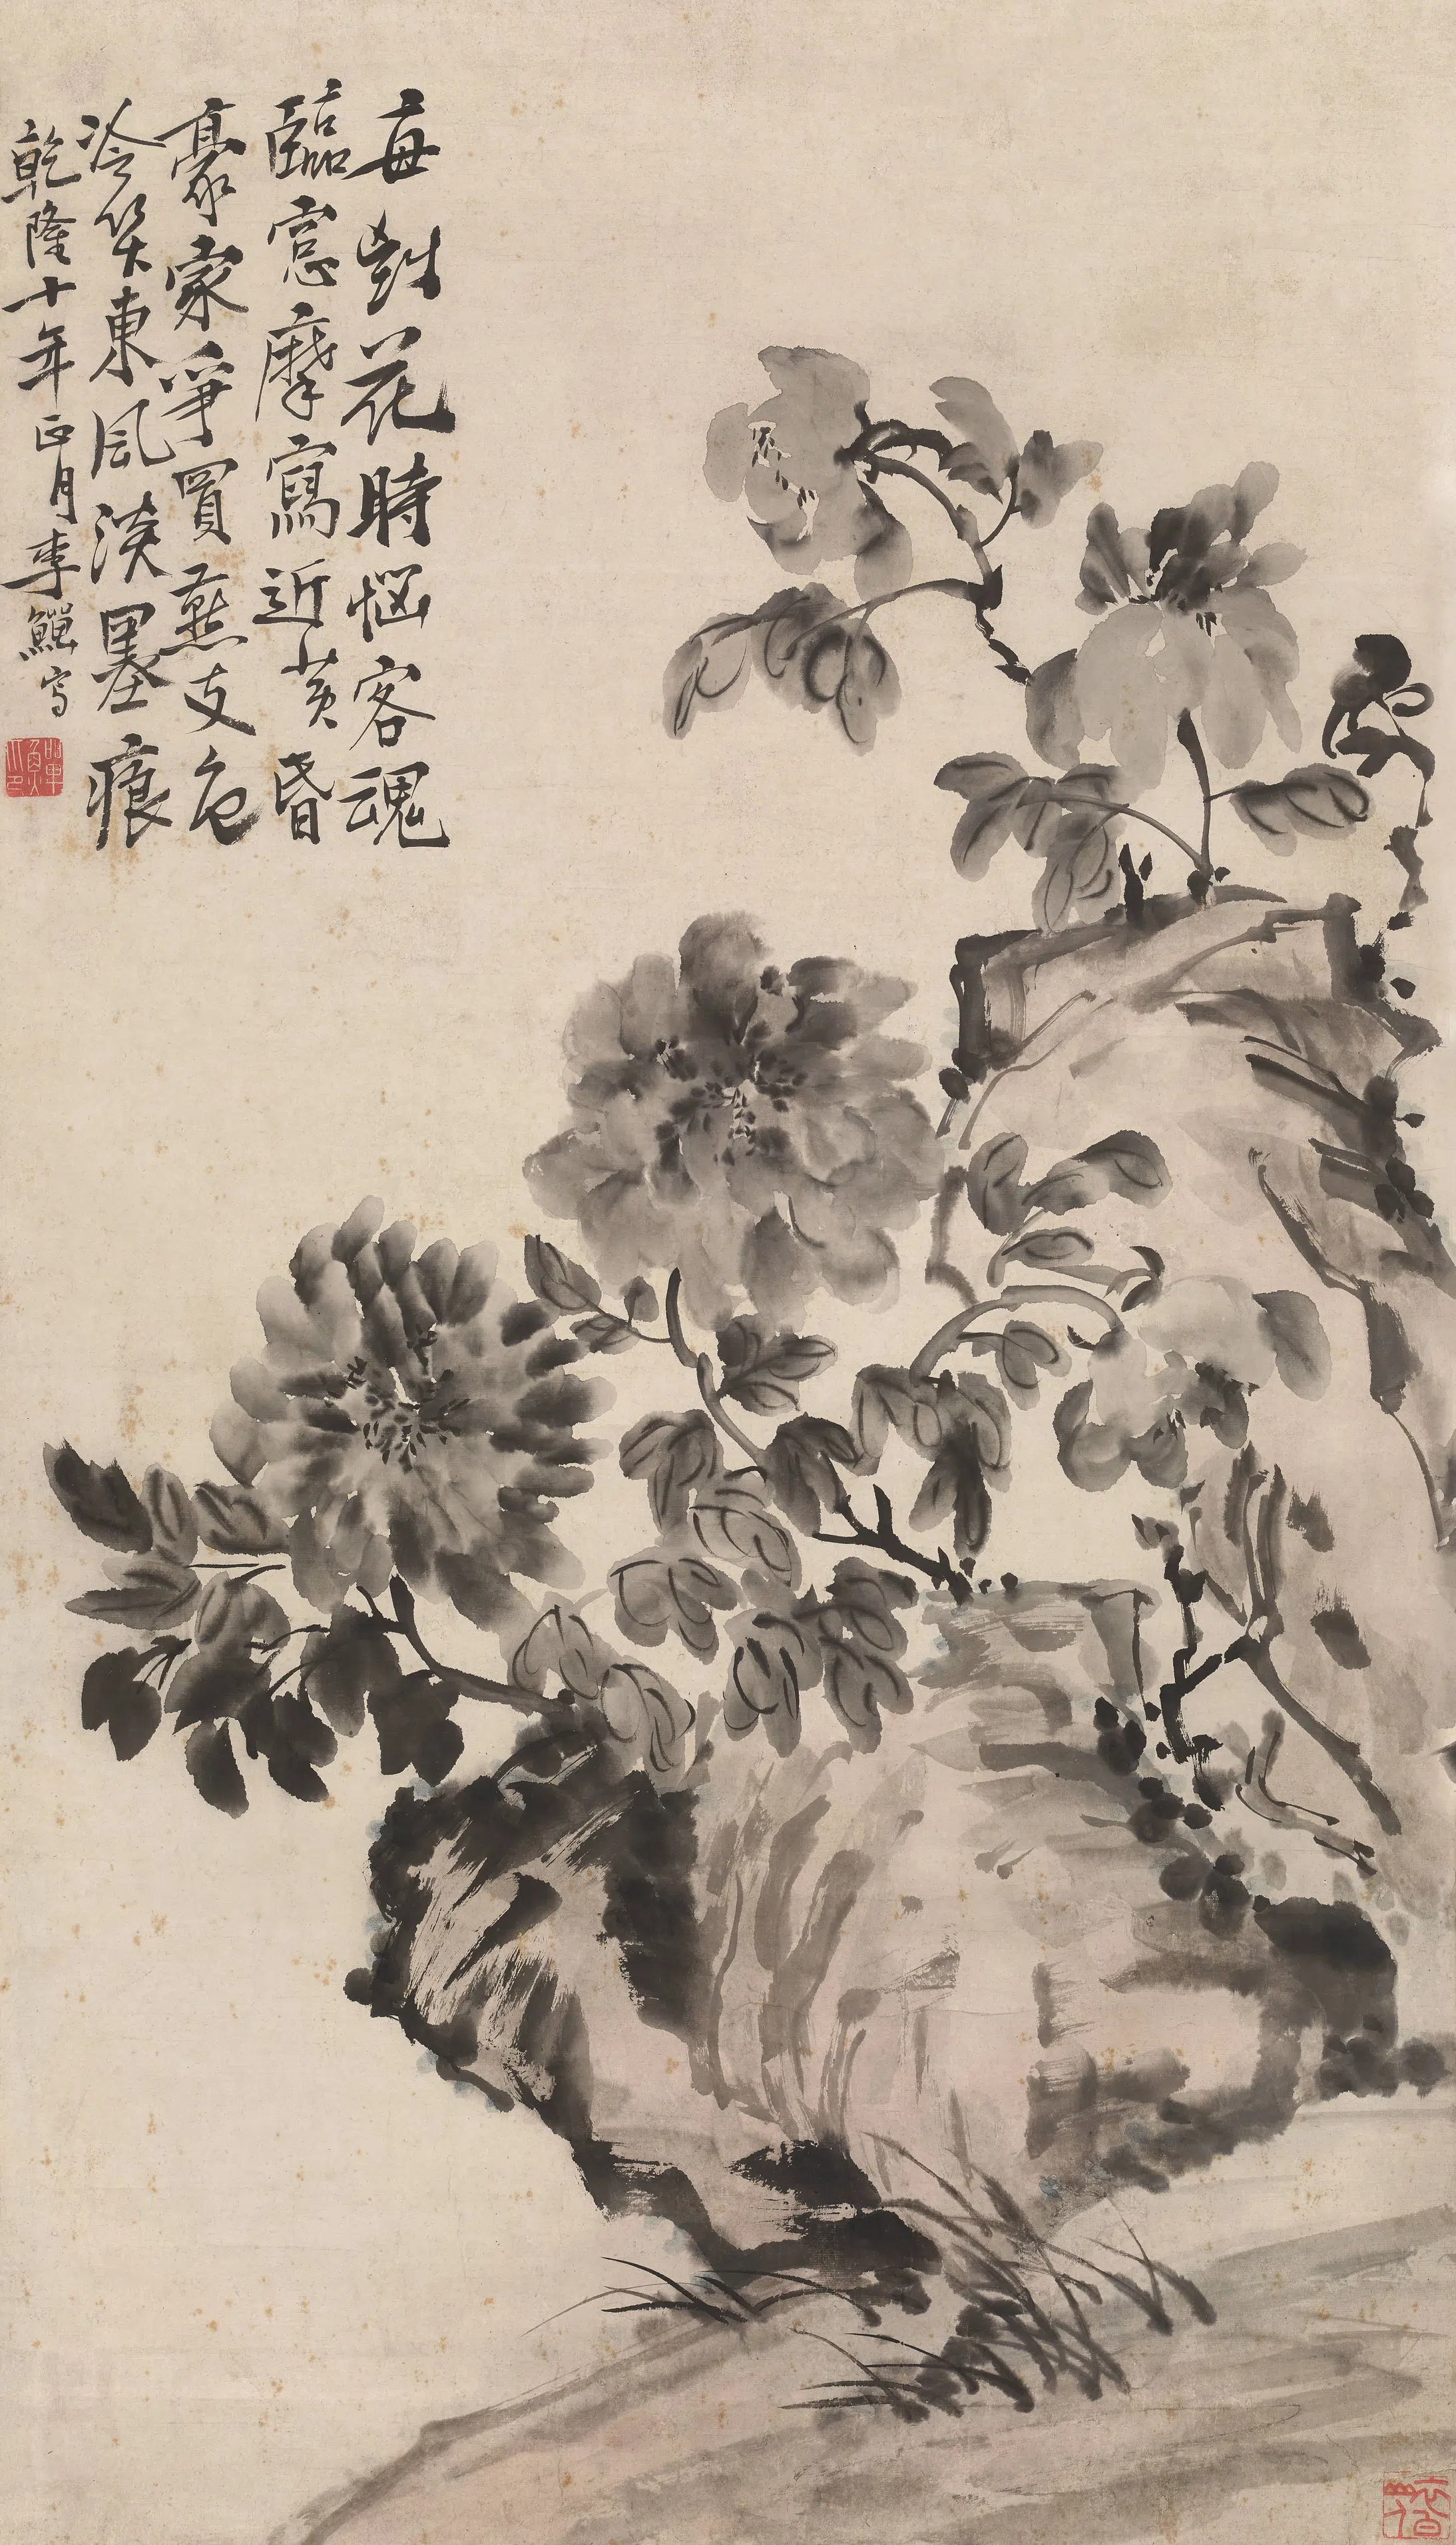 每對花時惱客魂
臨窻摩寫近黃昏
豪家爭買燕支色
冷笑東風淡墨痕
乾隆十年正月李鱓寫